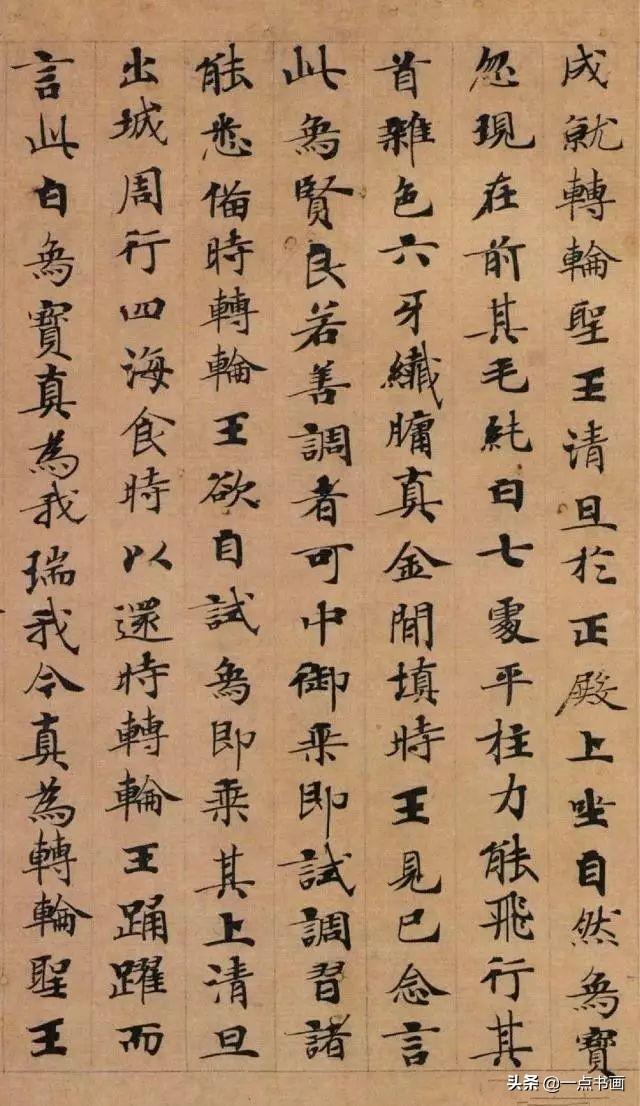 成就轉輪聖王清旦於正殿上坐自然象寶
忽現在前其毛純白七處平柱力能飛行其
首雜色六牙纖𦟛真金間填時王見已念言
此象賢良若善調者可中御乘即試調習諸
能悉備時轉輪王欲自試象即乘其上清旦
出城周行四海食時以還時轉輪王踊躍而
言此白象寶真為我瑞我今真為轉輪聖王
头条 @一点书画